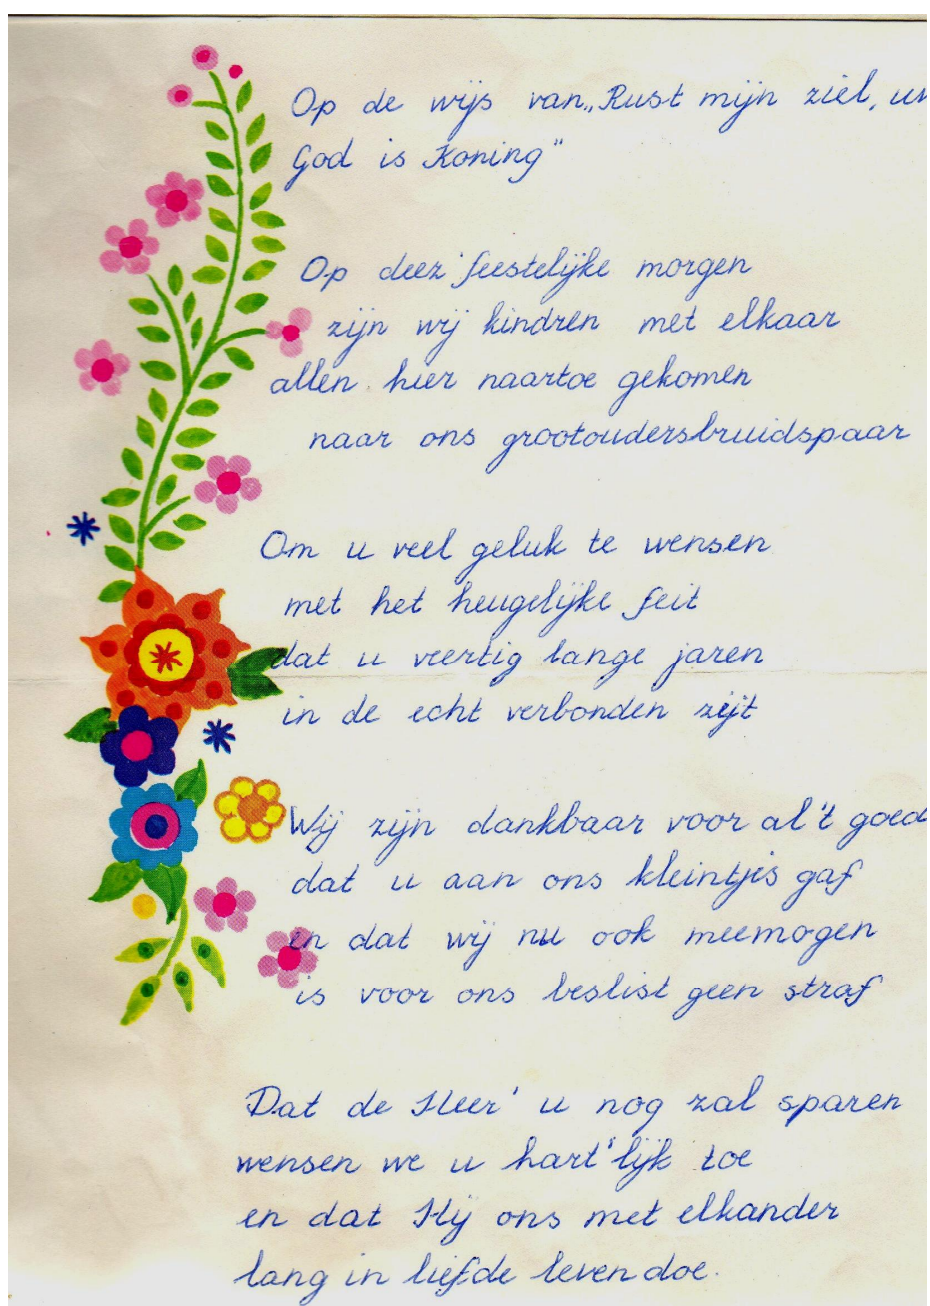 Op de wijs van „Rust mijn ziel, uw
God is Koning"
Op deez' feestelijke morgen
zijn wij kindren met elkaar
allen hier naartoe gekomen
naar ons grootoudersbruidspaar
Om u veel geluk te wensen
met het heugelijke feit
dat u veertig lange jaren
in de echt verbonden zijt
Wij zijn dankbaar voor al 't goed
dat u aan ons kleintjes gaf
en dat wij nu ook meemogen
is voor ons beslist geen straf
Dat de Heer' u nog zal sparen
wensen we u hart'lijk toe
en dat Hij ons met elkander
lang in liefde leven doe.